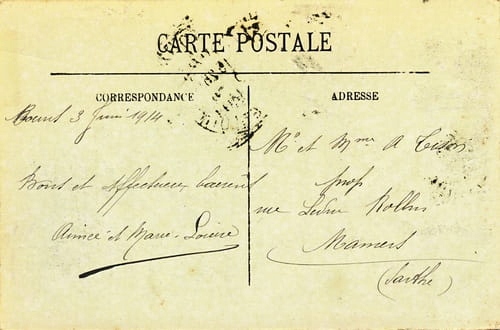 CARTE POSTALE
CORRESPONDANCE
3 Juin 1914
Bons et Affectueux baisers
Aimée et Marie-Louise
ADRESSE
Mr et Mme A
prop
rue Ledru Rollin
Mamers
(Sarthe)